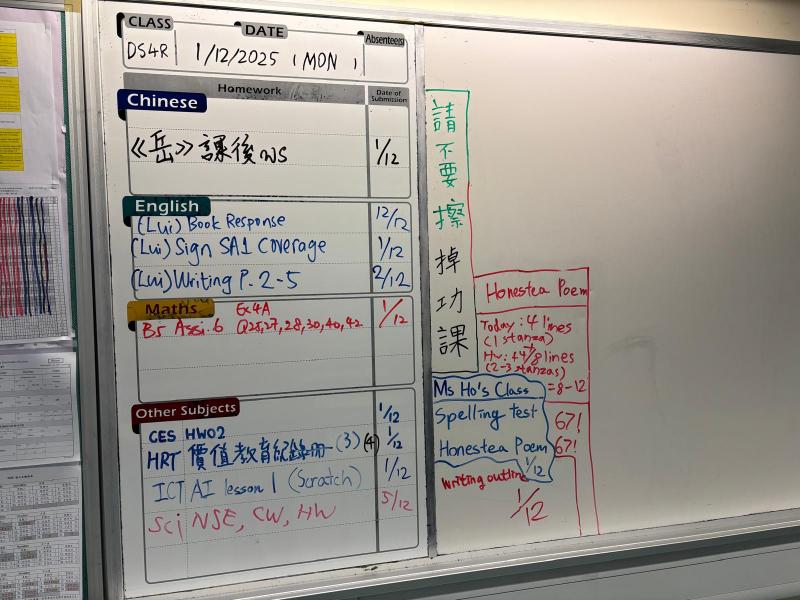 CLASS
DATE
Absentee(s)
DS4R
1/12/2025 (MON)
Homework
Date of Submission
Chinese
《岳》課後ws
1/12
English
(Lui) Book Response
12/12
(Lui) Sign SA1 Coverage
1/12
(Lui) Writing P. 2-5
2/12
Maths
Ex4A
B5 Assi. 6 Q25,27,28,30,40,42
1/12
Other Subjects
CES HW02
1/12
HRT 價值教育紀錄冊 (3) (4)
1/12
ICT AI lesson 1 (Scratch)
1/12
Sci NSE, CW, HW
5/12
請不要擦掉功課
Honestea Poem
Today: 4 lines
(1 stanza)
Hw: +4/8 lines
(2-3 stanzas)
=8-12
Ms Ho's Class
Spelling test
67!
Honestea Poem
67!
1/12
Writing outline
1/12